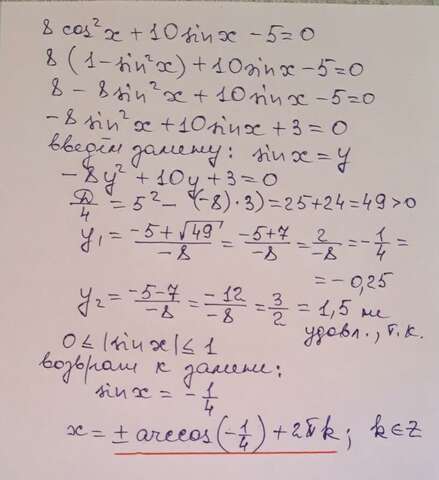 8 cos²x + 10 sinx - 5 = 0
8 (1 - sin²x) + 10 sinx - 5 = 0
8 - 8 sin²x + 10 sinx - 5 = 0
-8 sin²x + 10 sinx + 3 = 0
введём замену: sinx = y
-8y² + 10y + 3 = 0
D/4 = 5² - (-8)·3) = 25 + 24 = 49 > 0
y₁ = (-5 + √49)/(-8) = (-5+7)/(-8) = 2/(-8) = -1/4 =
= -0,25
y₂ = (-5-7)/(-8) = (-12)/(-8) = 3/2 = 1,5 не
удовл., т.к.
0 ≤ |sinx| ≤ 1
возврат к замене:
sinx = -1/4
x = ± arccos(-1/4) + 2πk; k∈Z